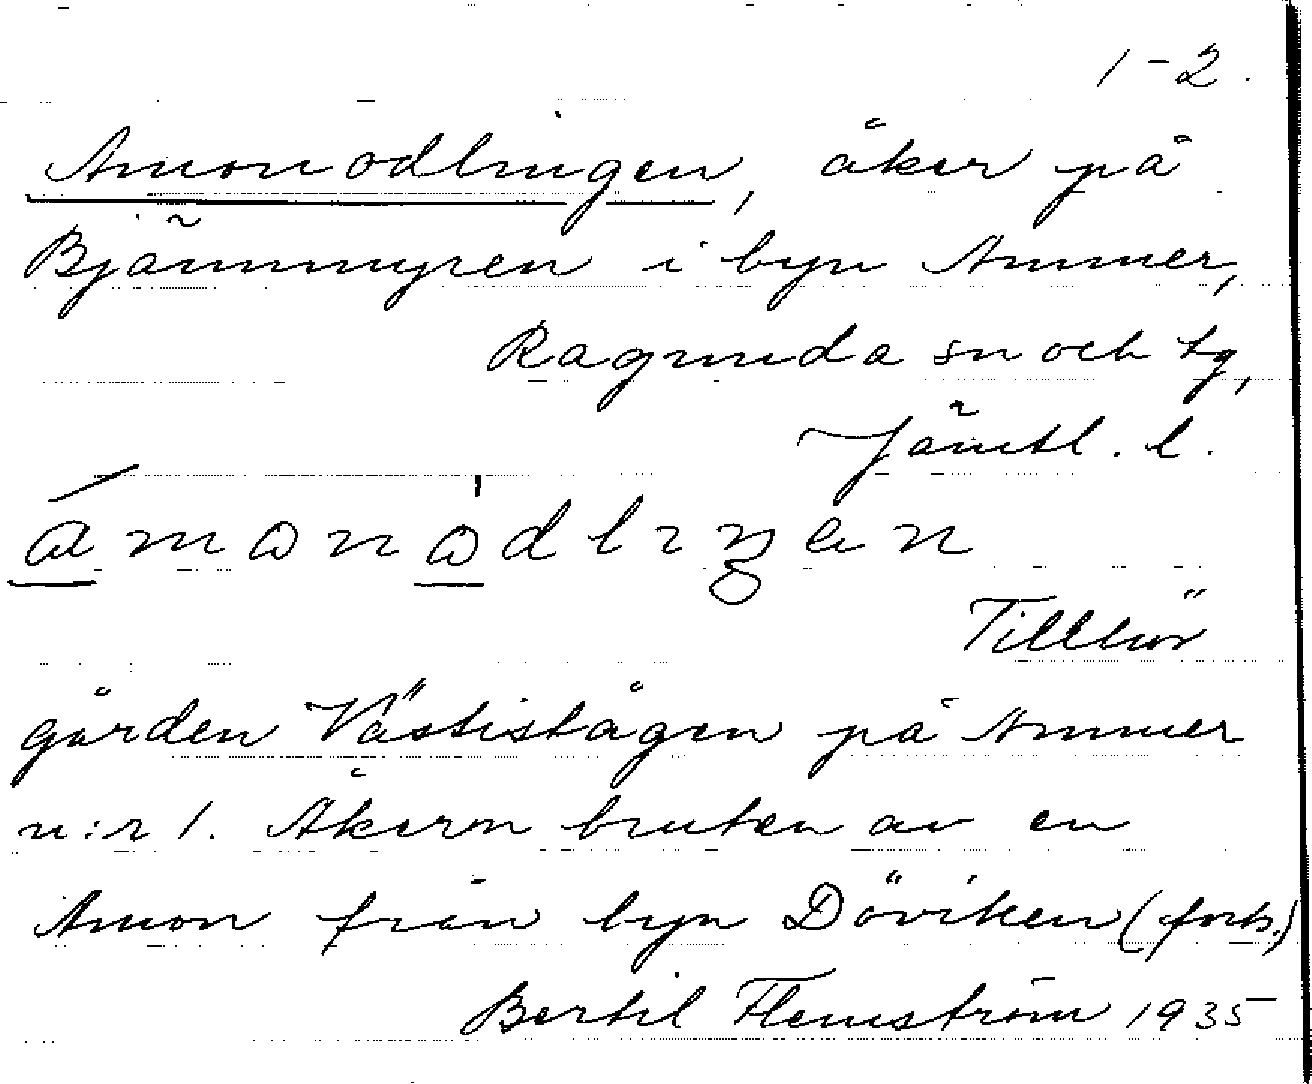 1-2.
Amonodlingen, åker på
Bjännmyren i byn Ammer,
Ragunda sn och tg,
Jämtl. l.
ámonòdlıŋen
Tillhör
gården Västistågen på Ammer
n:r 1. Åkern bruten av en
Amon från byn Döviken (forts.)
Bertil Flemström 1935